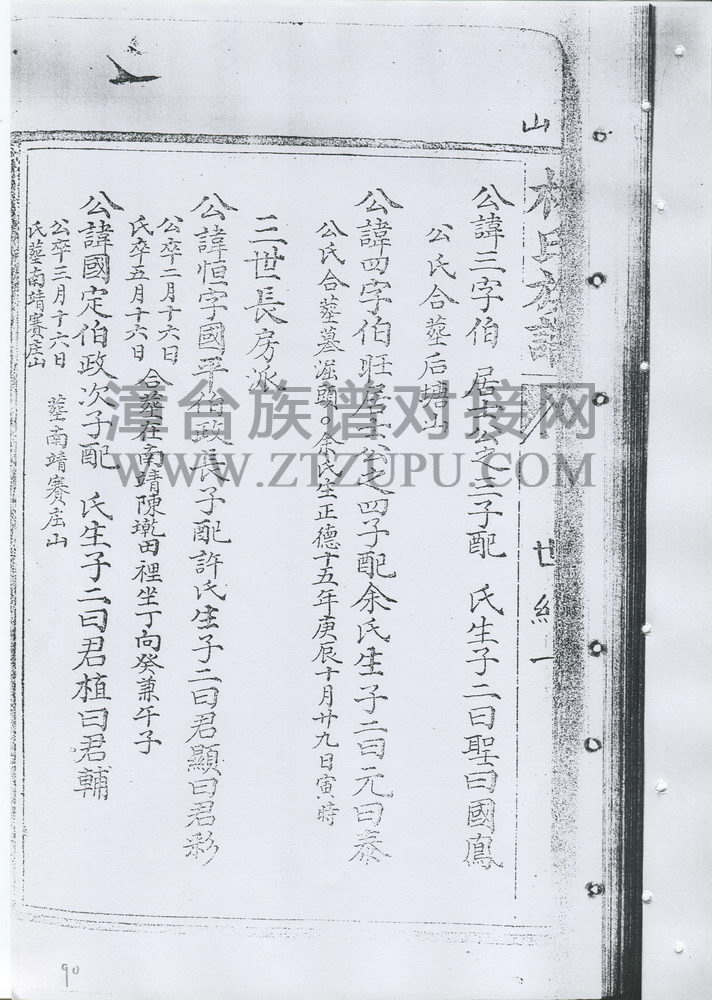 山
林氏族譜
世紀一
公諱三字伯 居士公之三子配 氏生子二曰聖曰國鳳
公氏合塟后塘山
公諱四字伯旺居士公之四子配余氏生子二曰元曰泰
公氏合塟墓漘頭。余氏生正德十五年庚辰十月廿九日寅時
三世長房派
公諱恒字國平伯政長子配許氏生子二曰君顯曰君彩
公卒二月十六日
氏卒五月十六日
合葬在南靖陳墘田裡坐丁向癸兼午子
公諱國定伯政次子配 氏生子二曰君植曰君輔
公卒三月十六日
氏塟南靖賽庄山
塟南靖賽庄山
漳台族谱对接网
WWW.ZTZUPU.COM
90